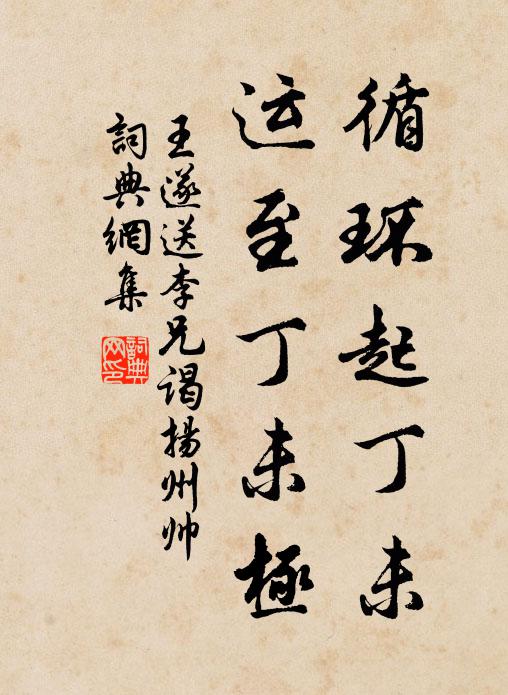 循环起丁未
运至丁未極
王遂送李兄谒揚州帅
詞典網集
詞典网印